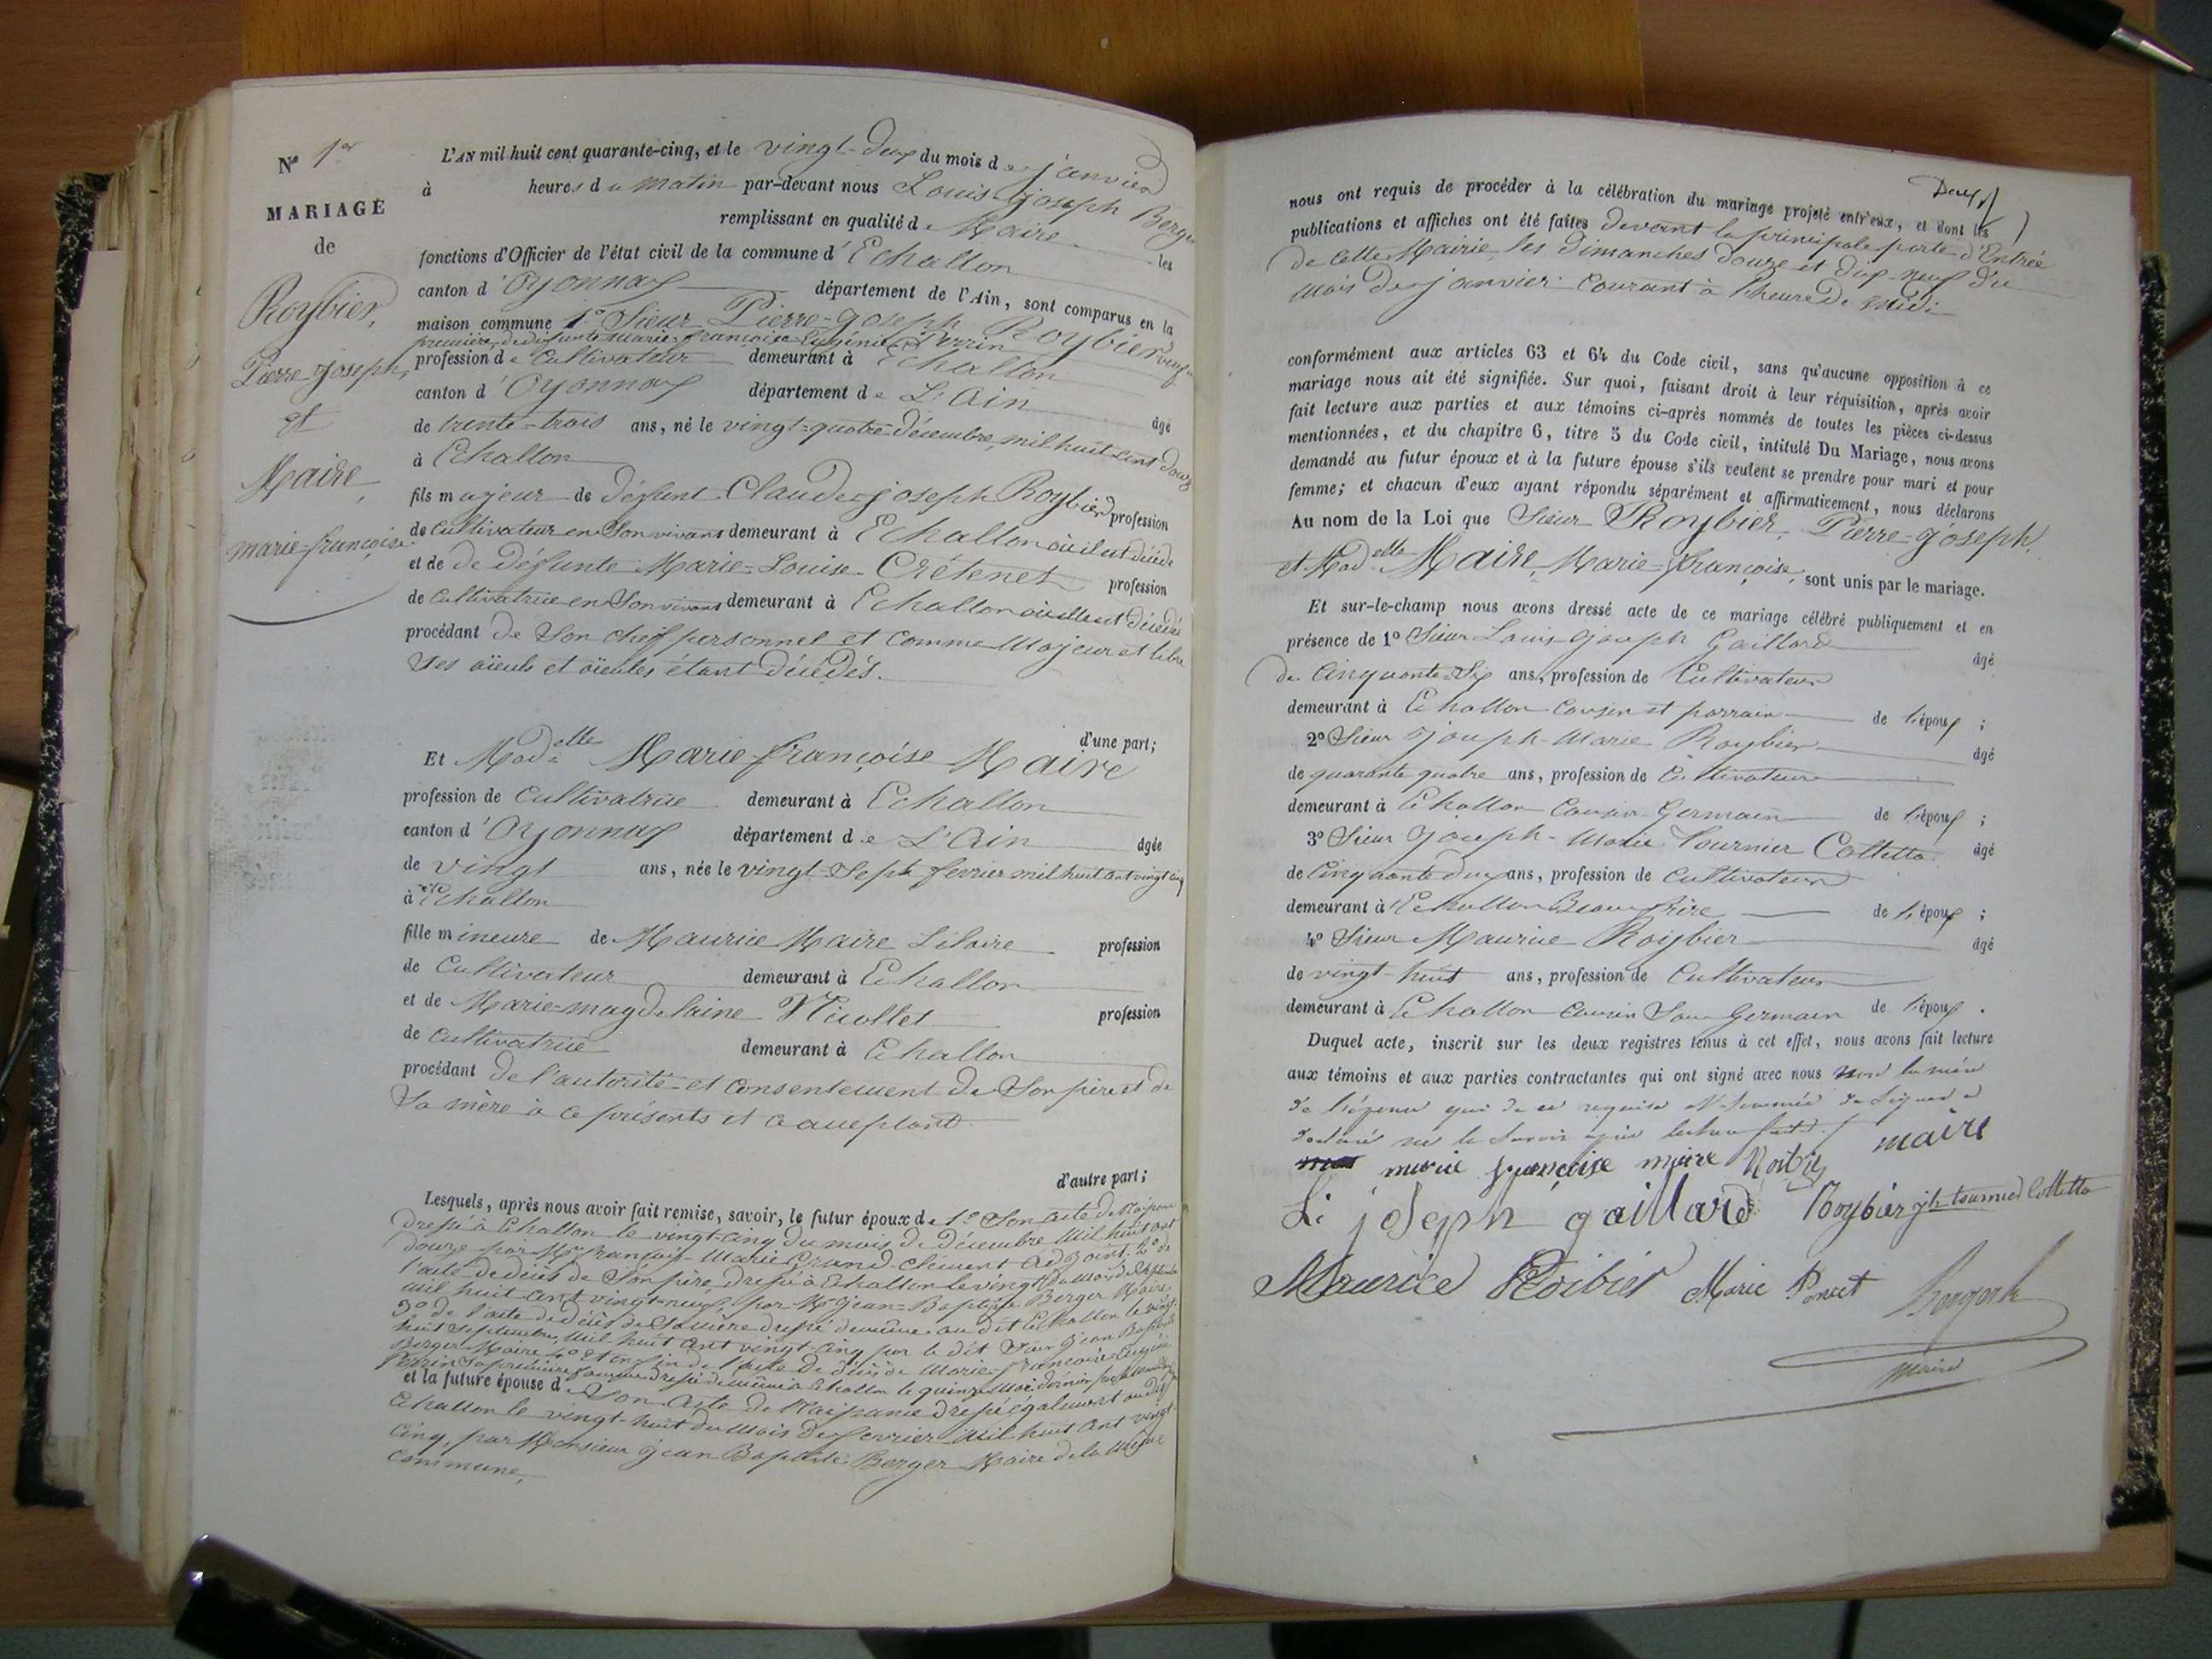 N° 1er
MARIAGE
de
Roybier,
Pierre-joseph,
et
Maire,
marie-françoise
L'AN mil huit cent quarante-cinq, et le vingt-deux du mois de janvier
à heures du matin par-devant nous Louis joseph Berger
remplissant en qualité de Maire les
fonctions d'Officier de l'état civil de la commune d'Echallon
canton d'Oyonnax département de l'Ain, sont comparus en la
maison commune 1° Sieur Pierre-joseph Roybier veuf en
première de défunte Marie-françoise Eugénie Perrin
profession de Cultivateur demeurant à Echallon
canton d'Oyonnax département de L'Ain âgé
de trente-trois ans, né le vingt-quatre décembre, mil huit cent douze
à Echallon
fils majeur de défunt Claude-joseph Roybier profession
de Cultivateur en Son vivant demeurant à Echallon où il est décédé
et de de défunte Marie-Louise Crétenet profession
de Cultivatrice en Son vivant demeurant à Echallon où elle est décédée
procédant de Son chef personnel et comme Majeur et libre
Ses aïeuls et aïeules étant décédés.
d'une part;
Et Madelle Marie françoise Maire
profession de Cultivatrice demeurant à Echallon
canton d'Oyonnax département de L'Ain âgée
de vingt ans, née le vingt-Sept février mil huit cent vingt cinq
à Echallon
fille mineure de Maurice Maire Lilaire profession
de Cultivateur demeurant à Echallon
et de Marie-magdelaine Nicollet profession
de Cultivatrice demeurant à Echallon
procédant de l'autorité et consentement de Son père et de
Sa mère à ce présents et ce acceptant
d'autre part;
Lesquels, après nous avoir fait remise, savoir, le futur époux de 1° Son acte de Naissance
dressé à Echallon le vingt-cinq du mois de décembre Mil huit cent
douze par Mr françois-Marie Grand-clément Adjoint. 2° de
l'acte de décès de Son père dressé à Echallon le vingt du Mois de Septembre
Mil huit cent vingt-neuf, par Mr Jean-Baptiste Berger Maire
3° de l'acte de décès de Sa mère dressé de même au dit Echallon le vingt-
huit Septembre, Mil huit cent vingt-cinq par le dit Sieur Jean Baptiste
Berger Maire 4° Et enfin de l'acte de décès de Marie-françoise-Eugénie
Perrin Sa première femme dressé de même à Echallon le quinze Mai dernier
et la future épouse de Son acte de Naissance dressé également au dit
Echallon le vingt-huit du Mois de fevrier Mil huit cent vingt-
Cinq, par Monsieur Jean Baptiste Berger Maire de la Même
Commune,
Deux
nous ont requis de procéder à la célébration du mariage projeté entr'eux, et dont les
publications et affiches ont été faites devant la principale porte d'Entrée
de cette Mairie, les dimanches douze et dix-neuf du
Mois de janvier courant à l'heure de midi
conformément aux articles 63 et 64 du Code civil, sans qu'aucune opposition à ce
mariage nous ait été signifiée. Sur quoi, faisant droit à leur réquisition, après avoir
fait lecture aux parties et aux témoins ci-après nommés de toutes les pièces ci-dessus
mentionnées, et du chapitre 6, titre 5 du Code civil, intitulé Du Mariage, nous avons
demandé au futur époux et à la future épouse s'ils veulent se prendre pour mari et pour
femme; et chacun d'eux ayant répondu séparément et affirmativement, nous déclarons
Au nom de la Loi que Sieur Roybier, Pierre-joseph,
et Madelle Maire, Marie-françoise, sont unis par le mariage.
Et sur-le-champ nous avons dressé acte de ce mariage célébré publiquement et en
présence de 1° Sieur Louis-Joseph Gaillard âgé
de Cinquante-Six ans, profession de Cultivateur
demeurant à Echallon Cousin et parrain de l'époux ;
2° Sieur Joseph-Marie Roybier âgé
de quarante quatre ans, profession de Cultivateur
demeurant à Echallon Cousin Germain de l'époux ;
3° Sieur Joseph-Marie Tournier Colletta âgé
de Cinquante deux ans, profession de Cultivateur
demeurant à Echallon Beau frère de l'époux ;
4° Sieur Maurice Roybier âgé
de vingt-huit ans, profession de Cultivateur
demeurant à Echallon Cousin Sous Germain de l'époux .
Duquel acte, inscrit sur les deux registres tenus à cet effet, nous avons fait lecture
aux témoins et aux parties contractantes qui ont signé avec nous non la mère
de l'épouse qui de ce requise et Sommée de Signer a
déclaré ne le Savoir après lecture faite. maire
marie françoise maire Roibier
L. joseph gaillard Roybier jh tournier Colletta
Maurice Roibier Marie Poncet Berger
Maire